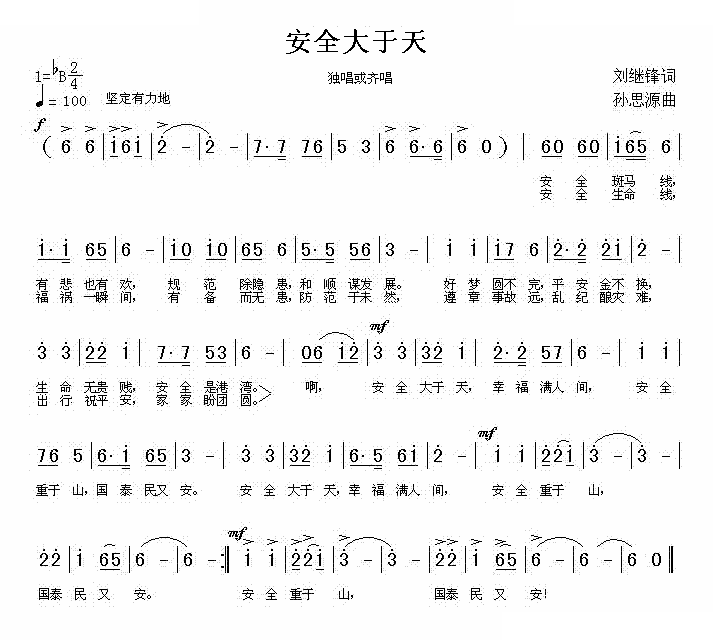 安全大于天
1=♭B 2/4
独唱或齐唱
刘继锋词
♩= 100 坚定有力地
孙思源曲
f
( 6 6 | i̇6i̇ | 2̇ - | 2̇ - | 7· 7 76 | 5 3 | 6 6·6 | 6 0 ) | 60 60 | i̇65 6 |
安 全 斑马 线,
安 全 生命 线,
i̇· i̇ 65 | 6 - | i̇0 i̇0 | 65 6 | 5· 5 56 | 3 - | i̇ i̇ | i̇7 6 | 2̇· 2̇ 2̇i̇ | 2̇ - |
有 悲 也有 欢, 规 范 除隐 患,和 顺 谋发 展。 好 梦 圆不 完,平 安 金不 换,
福 祸 一瞬 间, 有 备 而无 患,防 范 于未 然, 遵 章 事故 远,乱 纪 酿灾 难,
mf
3̇ 3̇ | 2̇2̇ i̇ | 7· 7 53 | 6 - | 06 i̇2̇ | 3̇ 3̇ | 3̇2̇ i̇ | 2̇· 2̇ 57 | 6 - | i̇ i̇ |
生 命 无贵 贱, 安 全 是港 湾。 啊, 安 全 大于 天,幸 福 满人 间, 安 全
出 行 祝平 安, 家 家 盼团 圆。
mf
76 5 | 6· i̇ 65 | 3 - | 3̇ 3̇ | 3̇2̇ i̇ | 6· 5 6i̇ | 2̇ - | i̇ i̇ | 2̇2̇i̇ | 3̇ - | 3̇ - |
重于 山,国 泰 民又 安。 安 全 大于 天,幸 福 满人 间, 安 全 重于 山,
mf
2̇2̇ | i̇ 65 | 6 - | 6 - :| i̇ i̇ | 2̇2̇i̇ | 3̇ - | 3̇ - | 2̇2̇ | i̇ 65 | 6 - | 6 - | 6 0 ‖
国泰 民 又 安。 安 全 重于 山, 国泰 民 又 安!